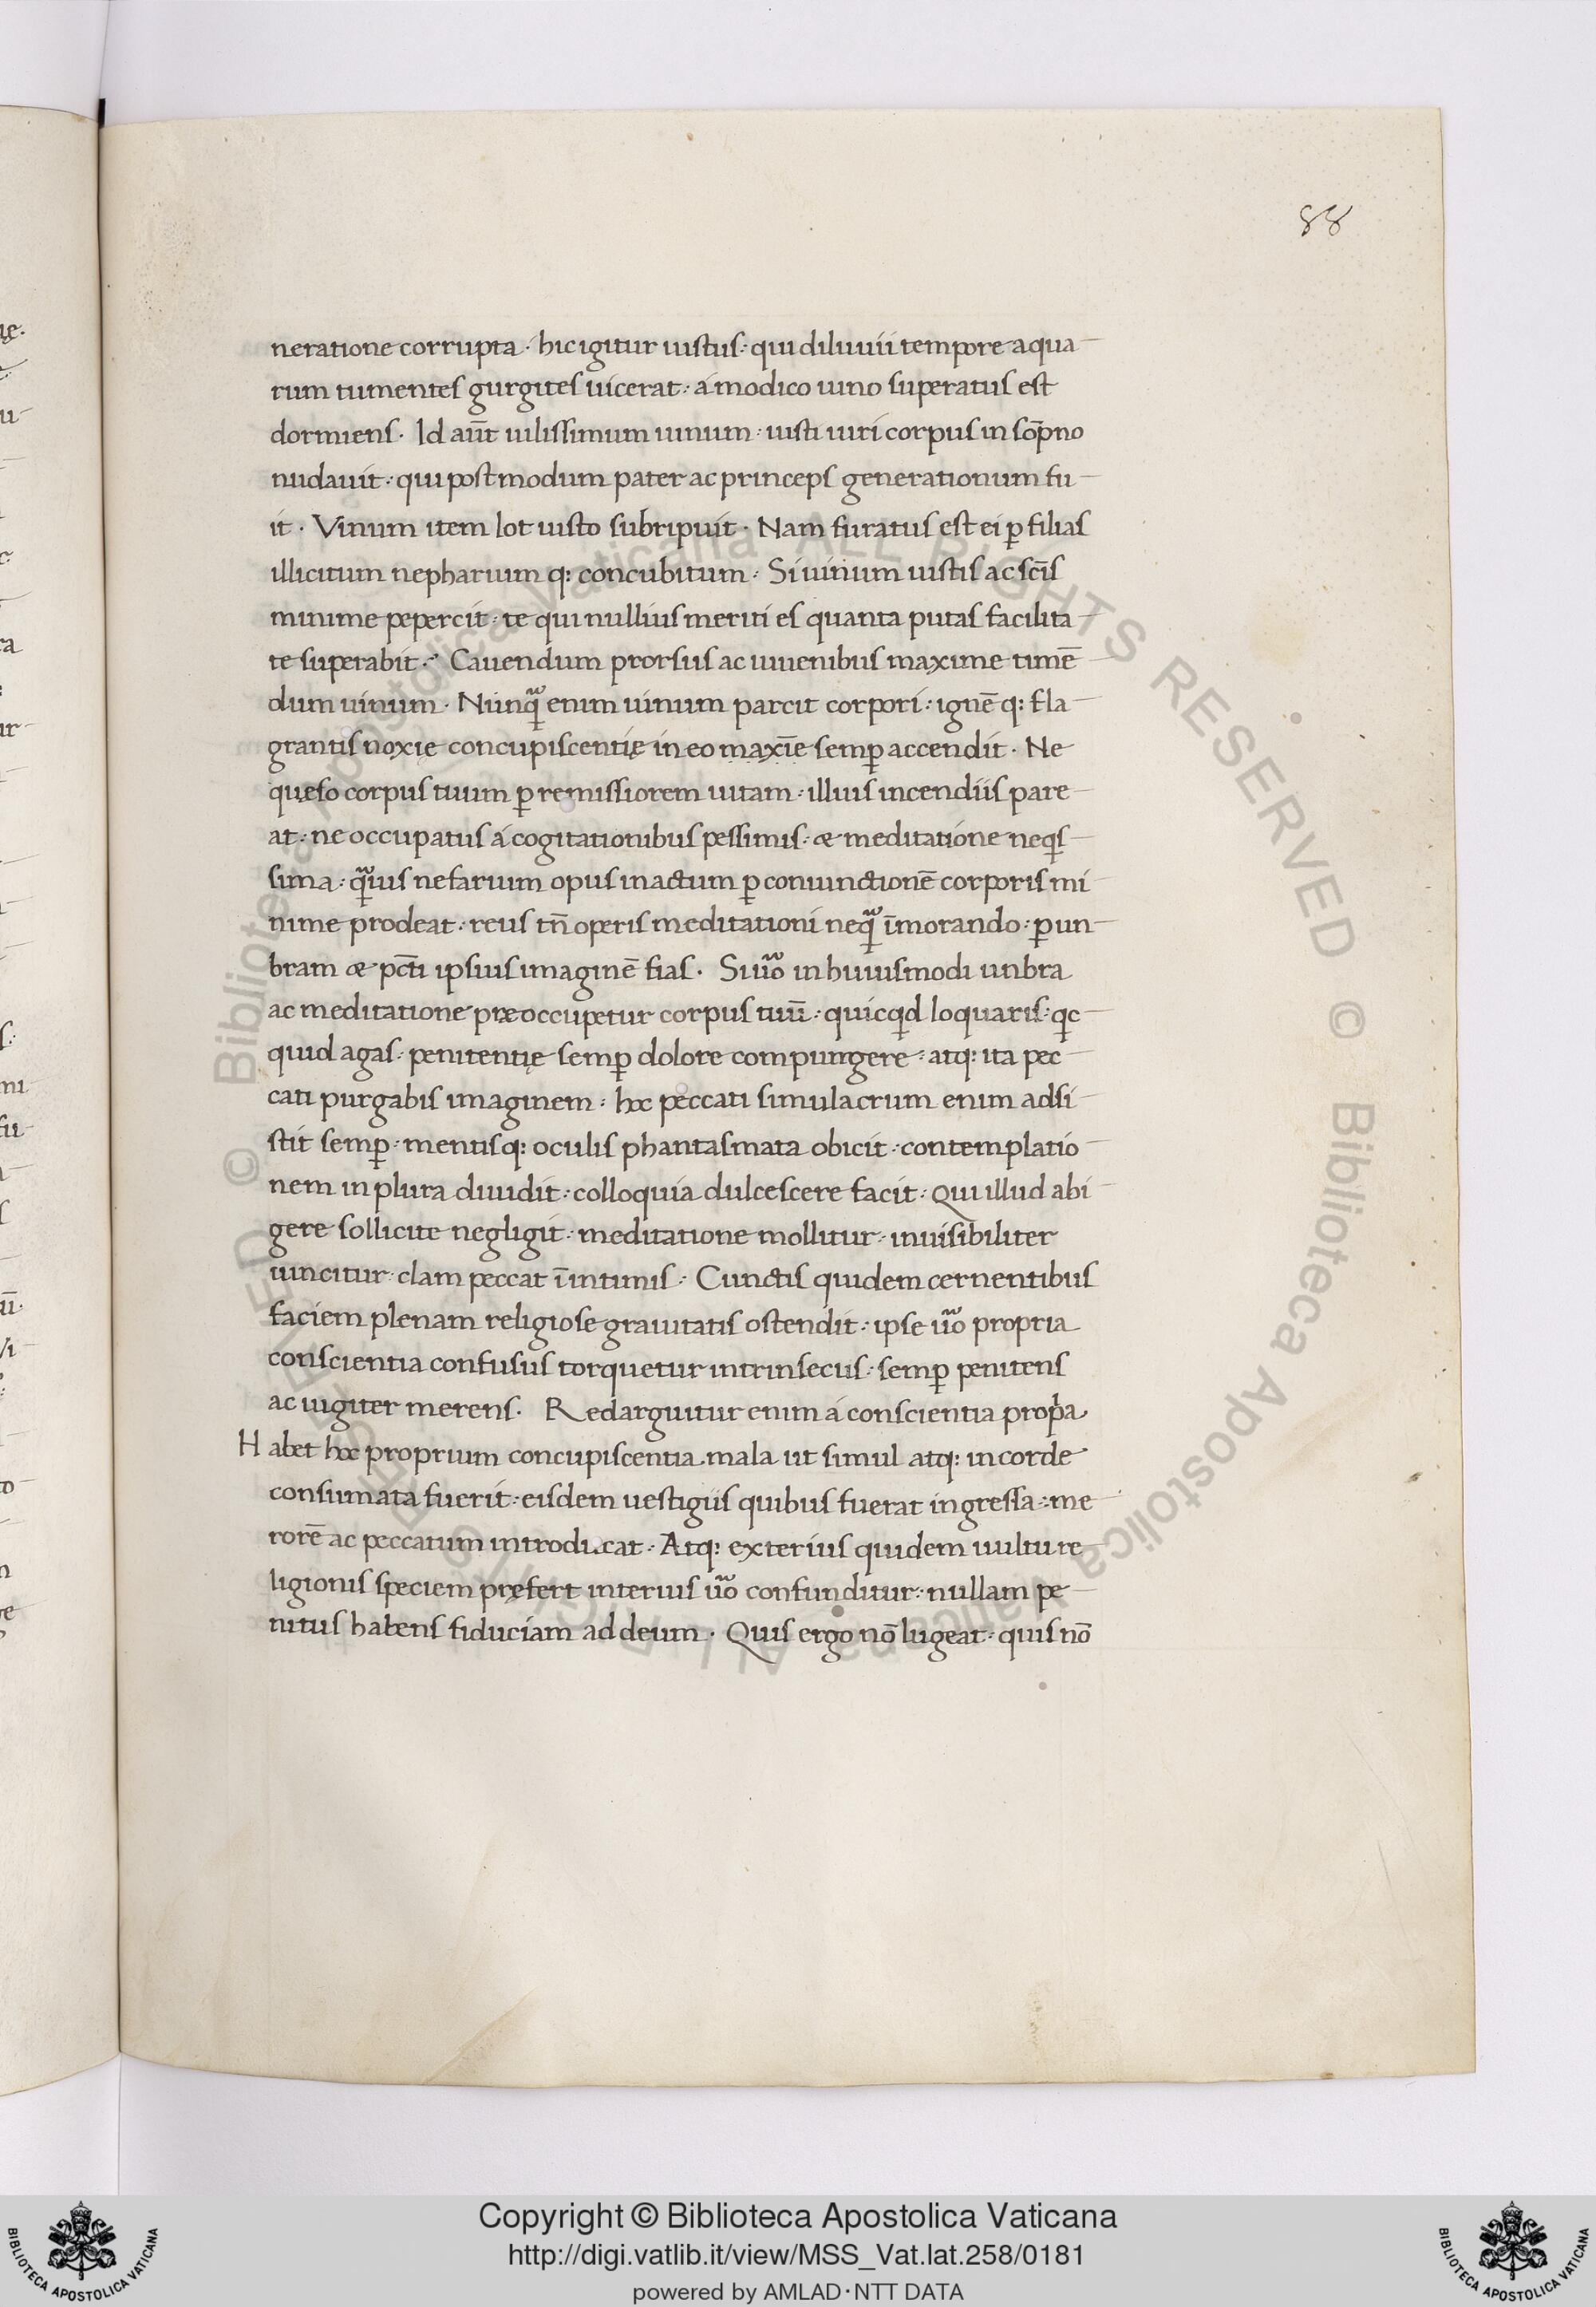 88
neratione corrupta · hic igitur iustus : qui diluuii tempore aqua
rum tumentes gurgites uicerat : a modico uino superatus est
dormiens · Id aūt uilissimum uinum : iusti uiri corpus in sōpno
nudauit : qui postmodum pater ac princeps generationum fu
it · Vinum item lot iusto subripuit · Nam furatus est ei ꝑ filias
illicitum nepharium q: concubitum : Si uinum iustis ac scīs
minime pepercit : te qui nullius meriti es quanta putas facilita
te superabit : Cauendum prorsus ac iuuenibus maxime timē
dum uinum · Nunqᷓ enim uinum parcit corpori : ignē q: fla
grantis noxię concupiscentię in eo maxīe semꝑ accendit · Ne
quęso corpus tuum ꝑ remissiorem uitam : illius incendiis pare
at : ne occupatus á cogitationibus pessimis : æ meditatione neqs
sima : qᷓuis nefarium opus in actum ꝑ coniunctionē corporis mi
nime prodeat : reus tn̄ operis meditationi neqᷓ īmorando : ꝑ un
bram æ pct̄i ipsius imaginē fias · Si uᷓo in huiusmodi unbra
ac meditatione præoccupetur corpus tuū : quicqd loquaris : qc
quid agas : penitentię semꝑ dolore compungere : atq: ita pec
cati purgabis imaginem : hoc peccati simulacrum enim adsi
stit semꝑ : mentisq: oculis phantasmata obicit : contemplatio
nem in plura diuidit : colloquia dulcescere facit : Qui illud abi
gere sollicite negligit : meditatione mollitur : inuisibiliter
uincitur : clam peccat ī intimis : Cunctis quidem cernentibus
faciem plenam religiose grauitatis ostendit : ipse uᷓo propria
conscientia confusus torquetur intrinsecus : semꝑ penitens
ac iugiter merens · Redarguitur enim á conscientia propa
H abet hoc proprium concupiscentia mala ut simul atq: in corde
consumata fuerit : eisdem uestigiis quibus fuerat ingressa : me
rorē ac peccatum introducat : Atq: exterius quidem uultu re
ligionis speciem pręfert interius uᷓo confunditur : nullam pe
nitus habens fiduciam ad deum · Quis ergo nō lugeat : quis nō
Copyright © Biblioteca Apostolica Vaticana
http://digi.vatlib.it/view/MSS_Vat.lat.258/0181
powered by AMLAD · NTT DATA